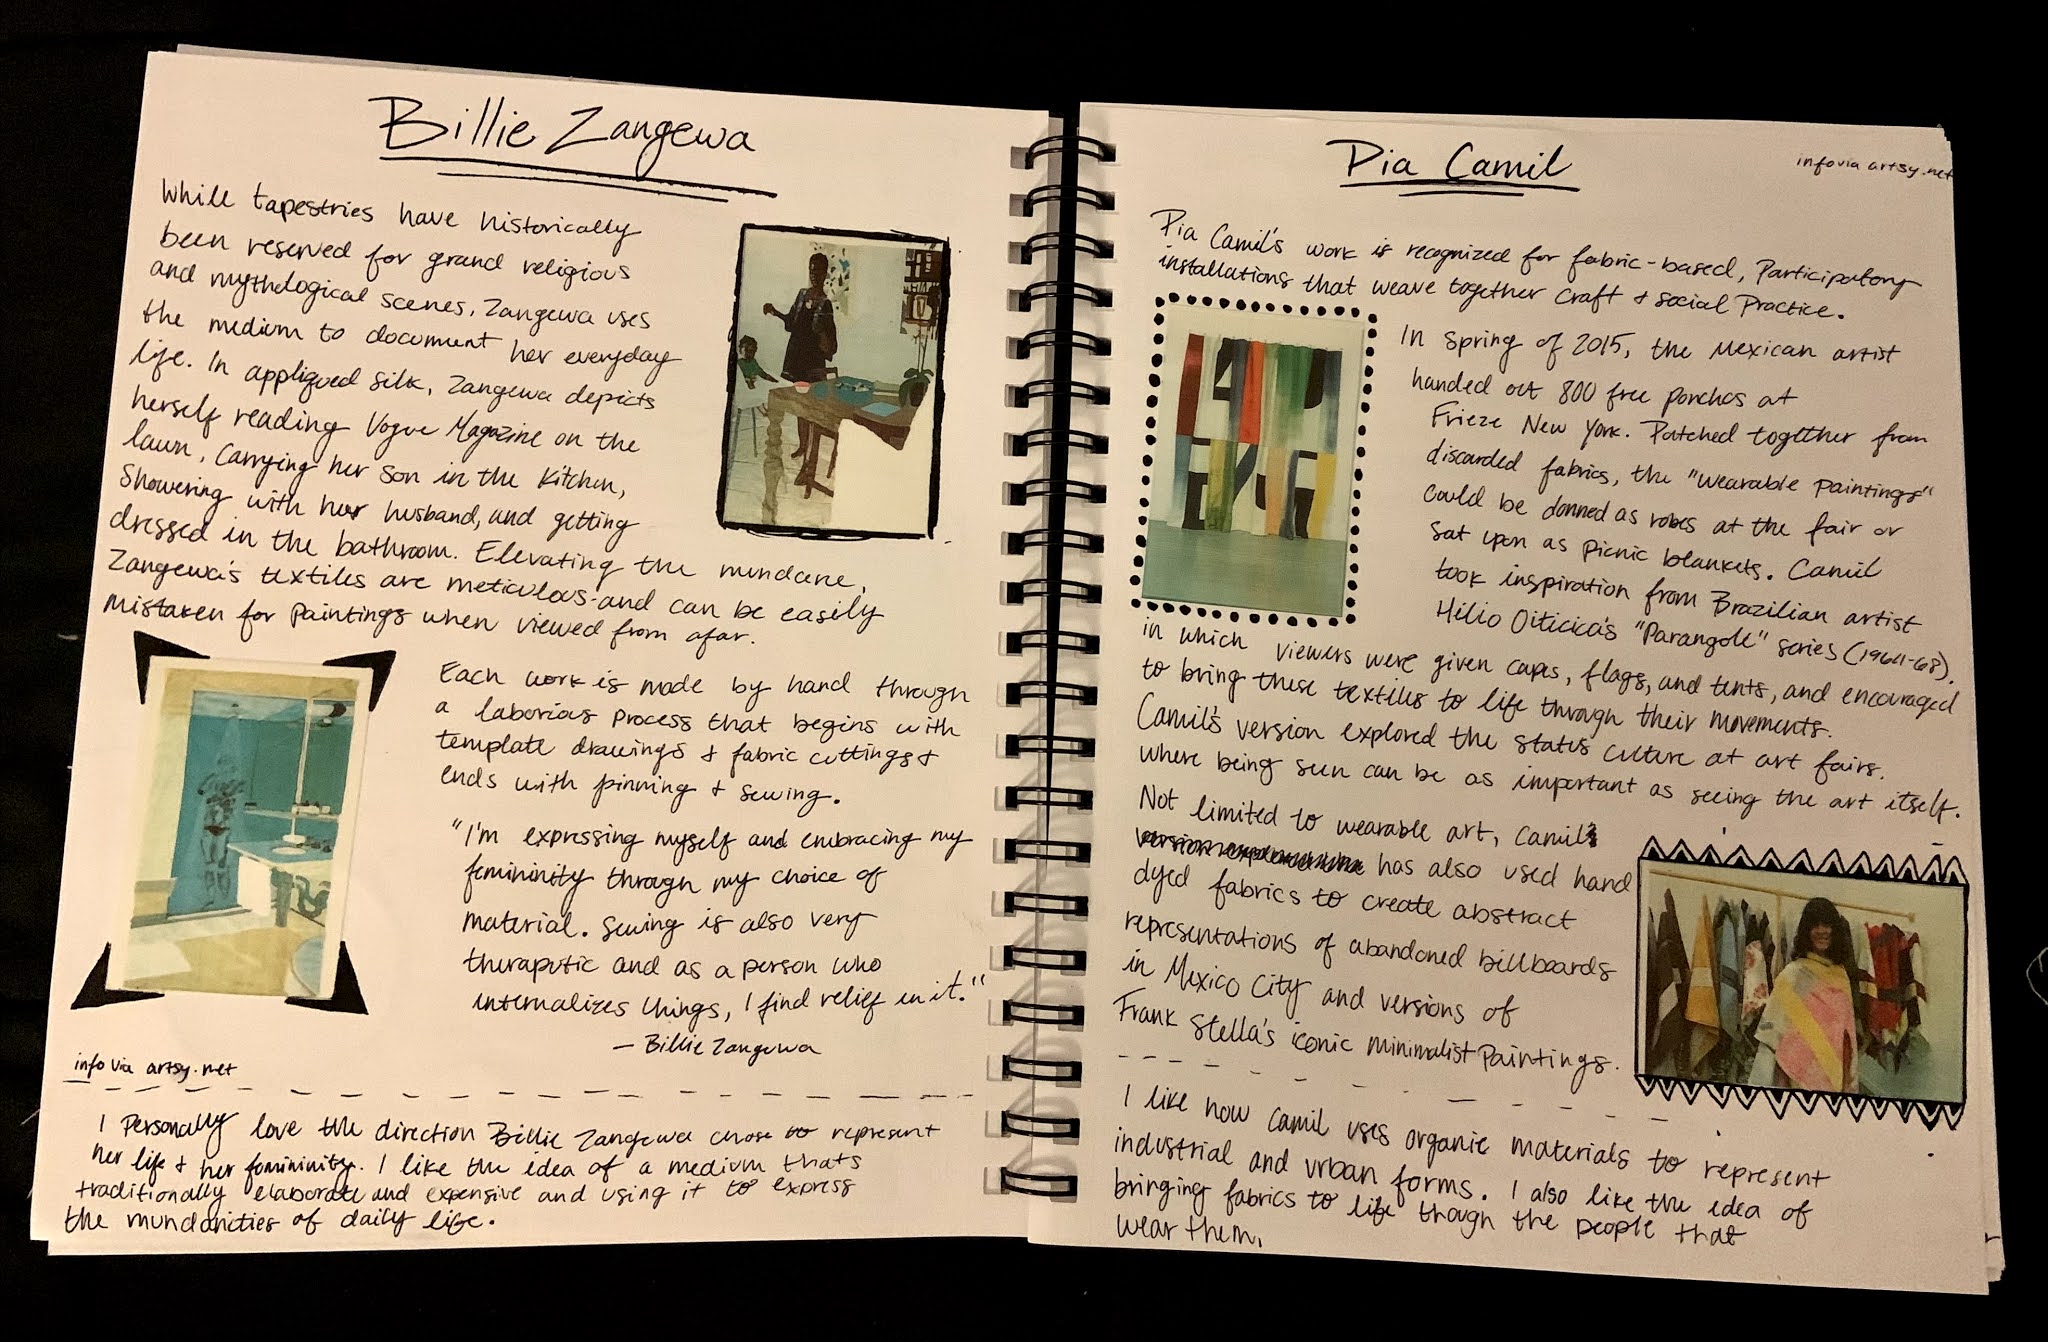 Billie Zangewa
While tapestries have historically
been reserved for grand religious
and mythological scenes, Zangewa uses
the medium to document her everyday
life. In appliqued silk, Zangewa depicts
herself reading Vogue Magazine on the
lawn, carrying her son in the kitchen,
Showering with her husband, and getting
dressed in the bathroom. Elevating the mundane,
Zangewa's textiles are meticulous-and can be easily
mistaken for paintings when viewed from afar.
Each work is made by hand through
a laborious process that begins with
template drawings & fabric cuttings &
ends with pinning & sewing.
"I'm expressing myself and embracing my
femininity through my choice of
material. Sewing is also very
theraputic and as a person who
internalizes things, I find relief in it."
— Billie Zangewa
info via artsy.net
I Personally love the direction Billie Zangewa chose to represent
her life & her femininity. I like the idea of a medium thats
traditionally elaborate and expensive and using it to express
the mundanities of daily life.
Pia Camil
info via artsy.net
Pia Camil's work is recognized for fabric-based, Participatory
installations that weave together craft & social Practice.
In Spring of 2015, the Mexican artist
handed out 800 free ponchos at
Frieze New York. Patched together from
discarded fabrics, the "wearable paintings"
could be donned as robes at the fair or
sat upon as picnic blankets. Camil
took inspiration from Brazilian artist
Hélio Oiticica's "Parangolé" series (1964-68).
in which viewers were given capes, flags, and tents, and encouraged
to bring these textiles to life through their movements.
Camil's version explored the status culture at art fairs.
where being seen can be as important as seeing the art itself.
Not limited to wearable art, Camil
has also used hand
dyed fabrics to create abstract
representations of abandoned billboards
in Mexico City and versions of
Frank Stella's iconic minimalist Paintings.
I like how Camil uses organic materials to represent
industrial and urban forms. I also like the idea of
bringing fabrics to life though the people that
wear them.